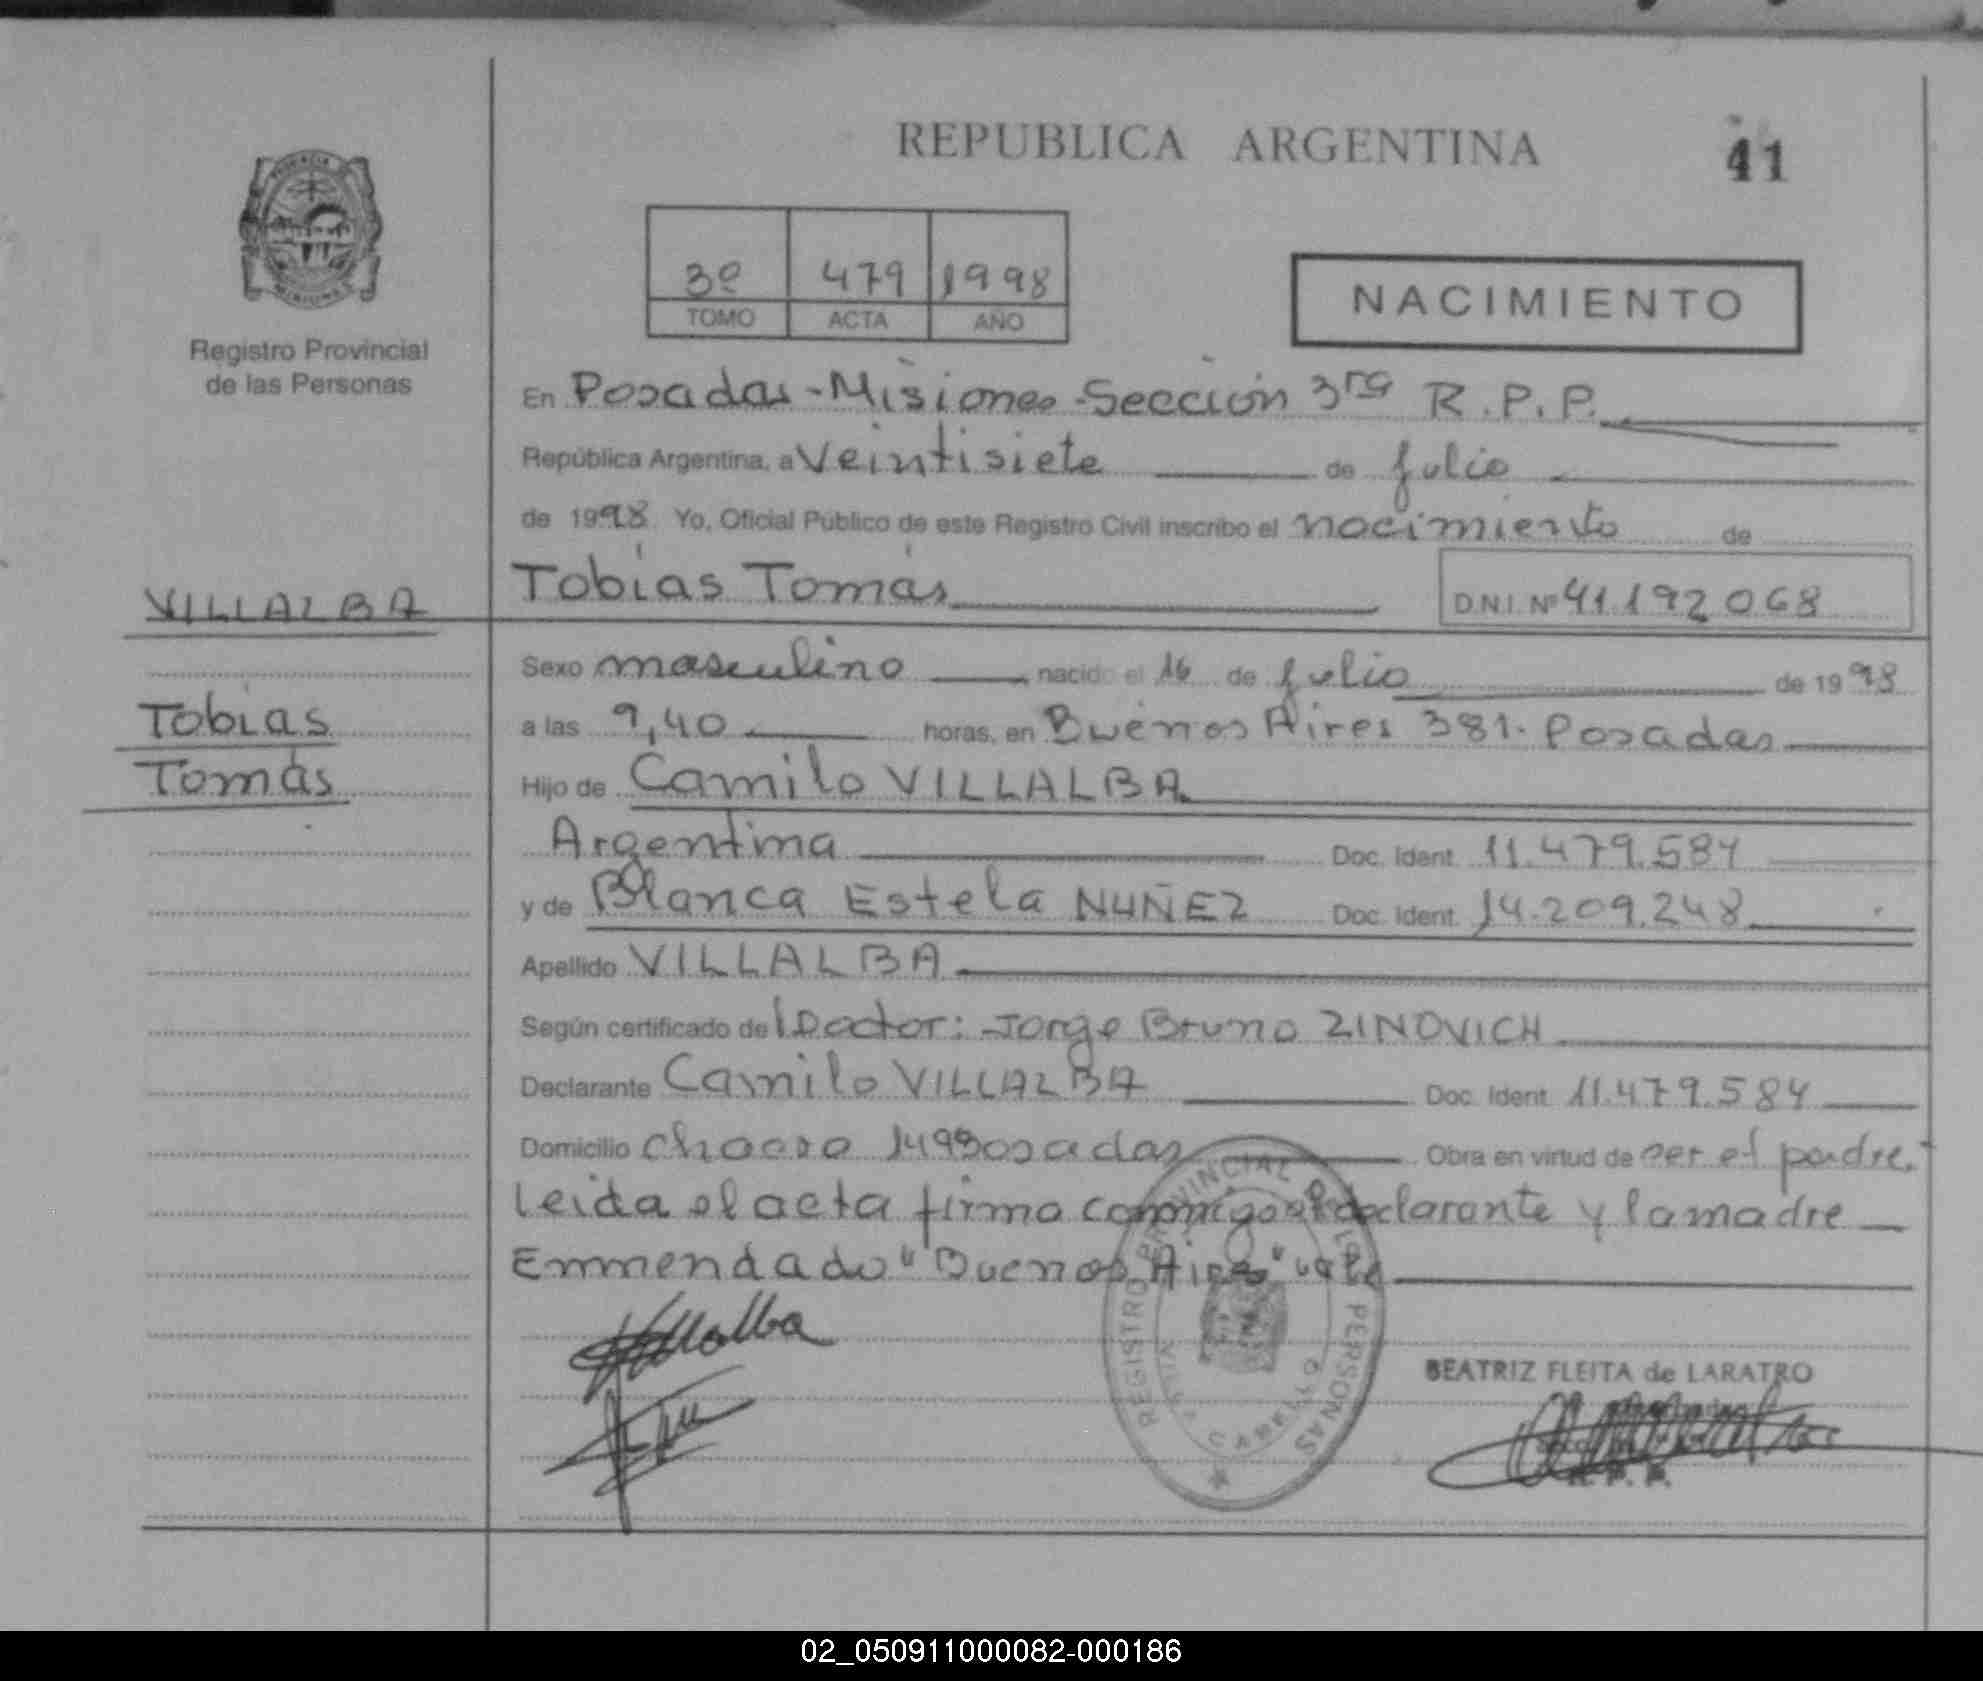 REPUBLICA ARGENTINA
41
PROVINCIA DE
MISIONES
Registro Provincial
de las Personas
3º 479 1998
TOMO ACTA AÑO
NACIMIENTO
En Posadas-Misiones-Sección 3ra R.P.P.
República Argentina, a Veintisiete de julio
de 1998 Yo, Oficial Público de este Registro Civil inscribo el nacimiento de
VILLALBA
Tobías Tomás
D.N.I. Nº 41.192068
Sexo masculino nacido el 16 de julio de 1998
Tobías
a las 9,40 horas, en Buenos Aires 381. Posadas
Tomás
Hijo de Camilo VILLALBA
Argentina Doc. Ident. 11.479.584
y de Blanca Estela NUÑEZ Doc. Ident. 14.209.248
Apellido VILLALBA
Según certificado del Doctor: Jorge Bruno ZINOVICH
Declarante Camilo VILLALBA Doc. Ident. 11.479.584
Domicilio Posadas Obra en virtud de ser el padre.
Leida el acta firma conmigo el declarante y la madre
Enmendado "Buenos Aires" vale
REGISTRO PROVINCIAL DE LAS PERSONAS
VILLA CABELLO
Villalba
BEATRIZ FLEITA de LARATRO
R. P. P.
02_050911000082-000186